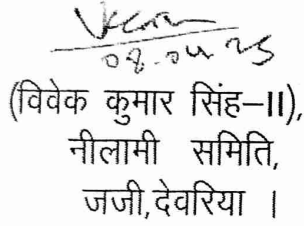 08.04.25
(विवेक कुमार सिंह–II),
नीलामी समिति,
जजी,देवरिया ।